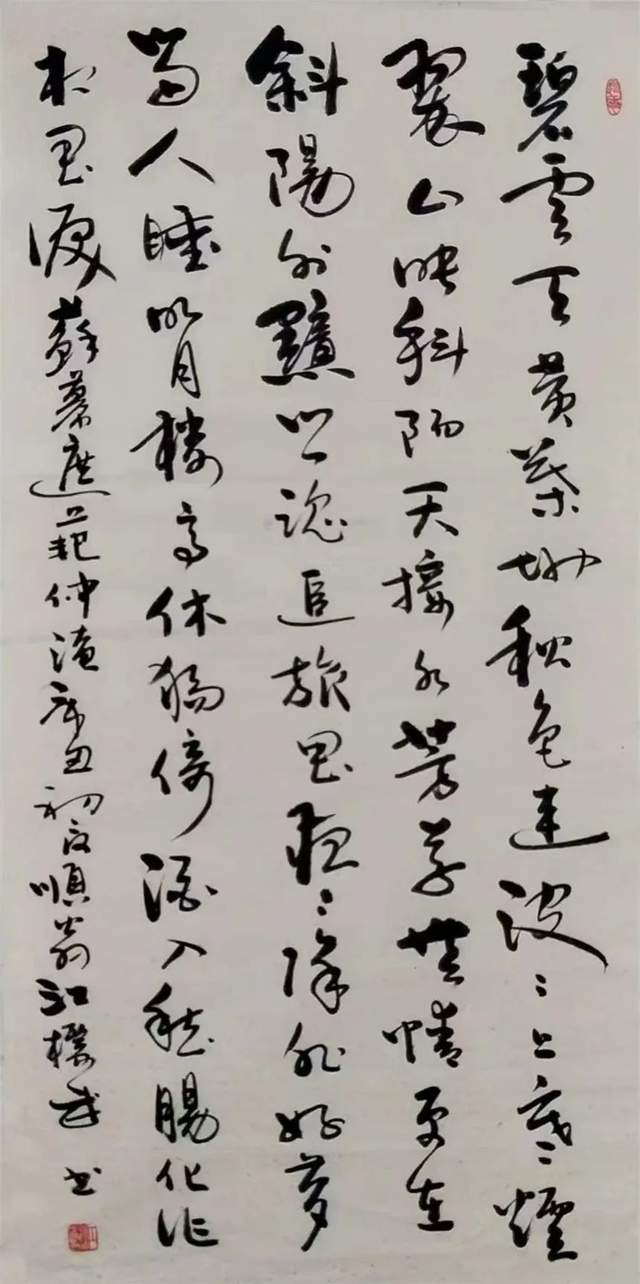 碧雲天黃葉地秋色連波〻上寒煙
翠山映斜陽天接水芳草無情更在
斜陽外黯鄉魂追旅思夜〻除非好夢
留人睡明月樓高休獨倚酒入愁腸化作
相思淚蘇幕遮范仲淹辛丑初夏順翁江書